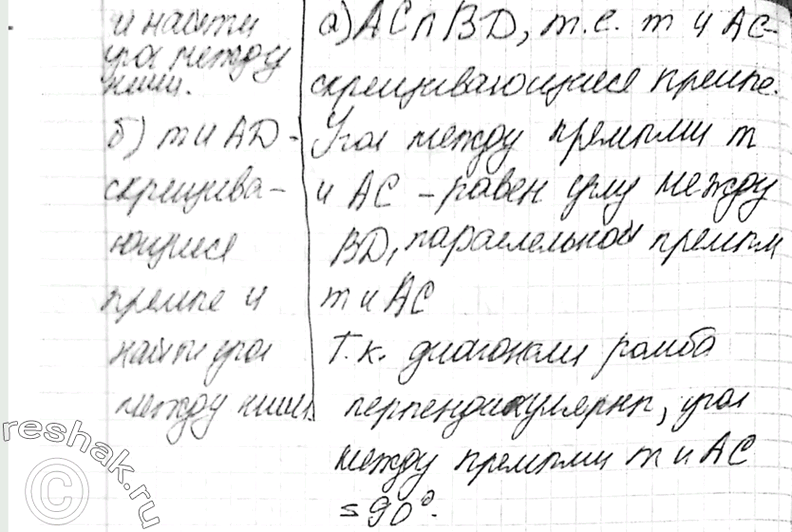 и найти
угол между
ними.
б) m и AD -
скрещива-
ющиеся
прямые и
найти угол
между ними.
а) AC ∩ BD, т.е. m и AC -
скрещивающиеся прямые.
Угол между прямыми m
и AC - равен углу между
BD, параллельной прямым
m и AC
Т.к. диагонали ромба
перпендикулярны, угол
между прямыми m и AC
= 90°.
reshak.ru